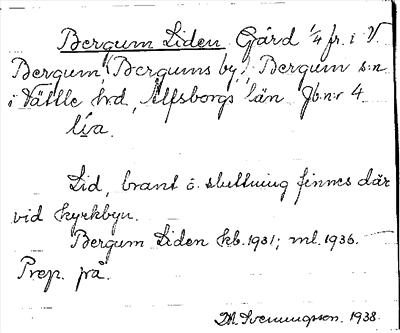 Bergum Liden Gård 1/4 fr. i V.
Bergum (Bergums by), Bergum s:n
i Vättle hrd, Älfsborgs län Jb.n:r 4
li̱a.
Lid, brant o. sluttning finnes där
vid kyrkbyn.
Bergum Liden kb. 1931; ml. 1936.
Prep. på.
M. Svenungsson. 1938.